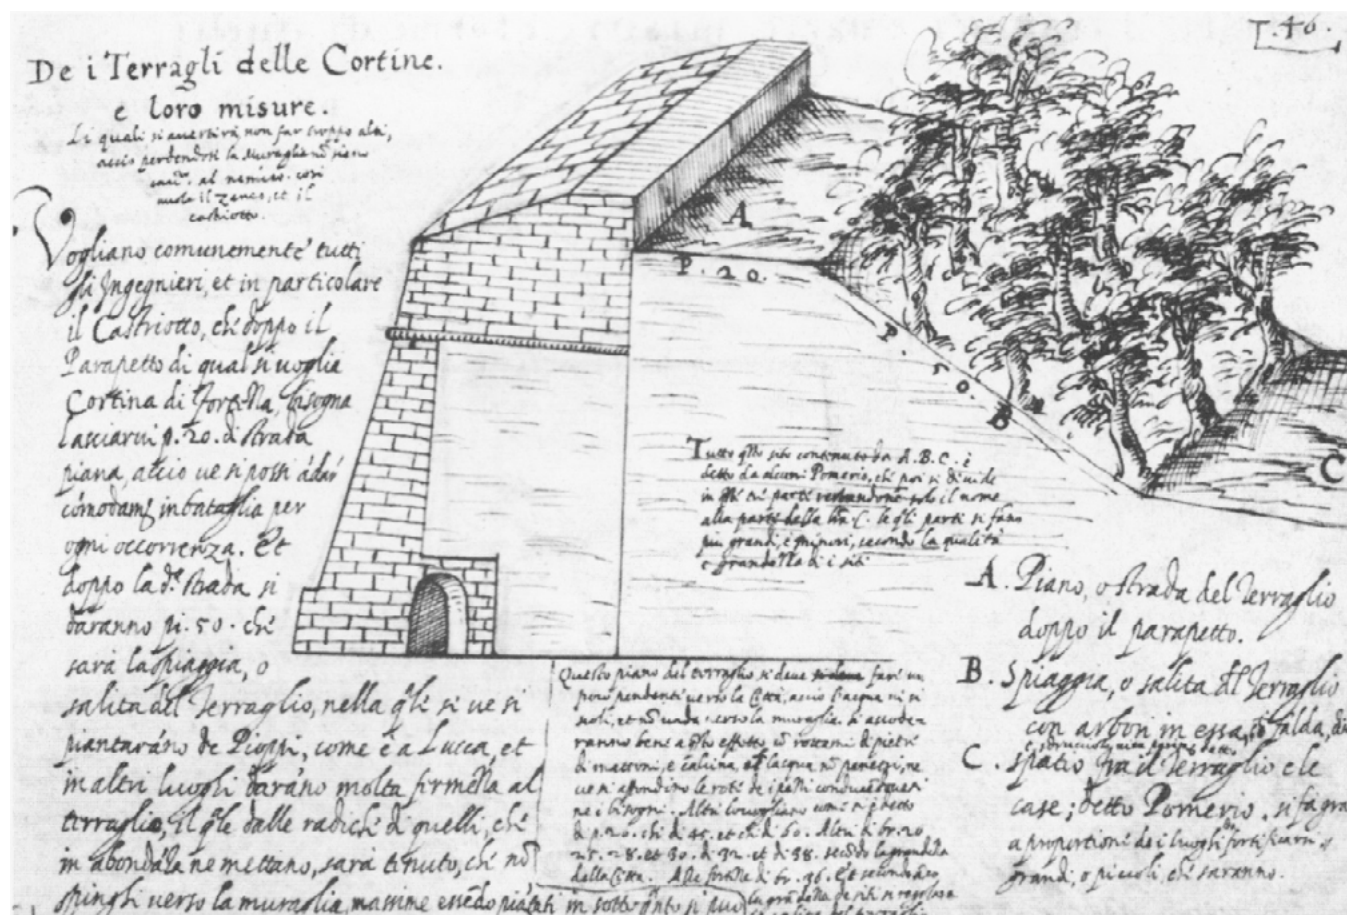 T. 46.
De i Terragli delle Cortine.
e loro misure.
Le quali si avertirà non far troppo alti,
acciò perdendosi la Muraglia nō siano
al nemico. così
vuole il Zanco, et il
Castriotto.
Vogliano comunemente tutti
gli Ingegnieri, et in particolare
il Castriotto, chè doppo il
Parapetto di qual si voglia
Cortina di Fortezza, bisogna
lasciarvi p. 20. di strada
piana, acciò ve si possi ādar
cōmodamte in bataglia per
ogni occorrenza. Et
doppo la da strada si
daranno pi. 50. chè
sarà la spiaggia, o
salita del Terraglio, nella qle si ve si
piantaranno de Pioppi, come è a Lucca, et
in altri luogli darāno molta fermezza al
terraglio, il qle dalle radichè di quelli, chè
in abondāza ne mettano, sarà tenuto, chè nō
spinghi verso la muraglia, massime essēdo piātati in sotto qnto si può
A
P. 20.
P. 50.
B
C
Tutto qsto sito contenuto da A.B.C. è
detto da alcuni Pomerio, chè poi si divide
in qste tre parti restandone solo il nome
alla parte della lra C. le qli parti si fāno
più grandi, e minori, secondo la qualità
e grandezza de i siti
Questo piano del terraglio si deve fare un
poco pendente verso la Città, acciò l'acqua vi si
scoli, et nō vada verso la muraglia. Si accoda
ranno bene a qsto effetto, cō rottami di pietre
di mattoni, e calcina, chè l'acqua nō penetri, ne
ve si afondino le rote de i pezzi
ne i bisogni. Altri vogliano
di p. 20. chi di 45. et chi di 60. Altri di br. 20
25. 28. et 30. di 32. et di 38. secōdo la grandezza
della Città. Alle fortezze di br. 46. Et secondo
la grādezza de siti si regolarà
la salita del terraglio
A. Piano, o strada del Terraglio
doppo il parapetto.
B. Spiaggia, o salita del Terraglio
con arbori in essa, o falda,
C. spatio fra il Terraglio e le
case; detto Pomerio. si fa gra
a proportione de i luoghi fortificarn
grandi, o piccoli chè saranno.